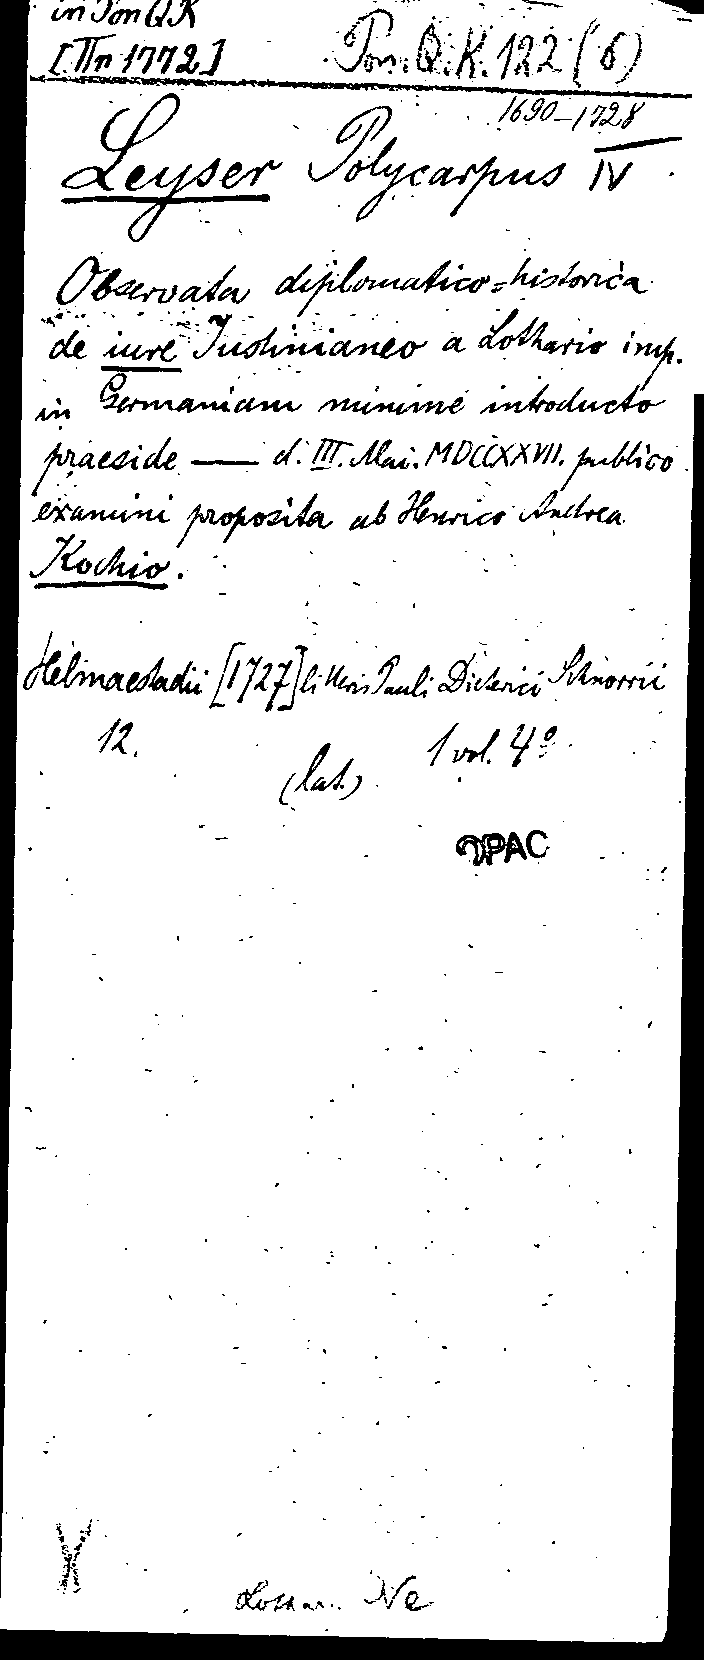 in Pon QK
[IIn 1772]
Pon. Q. K. 122 (6)
1690–1728
Leyser Polycarpus IV
Observata diplomatico=historica
de iure Iustinianeo a Lothario imp.
in Germaniam minime introducto
praeside — d. III. Mai. MDCCXXVII. publico
examini proposita ab Henrico Andrea
Kochio.
Helmaestadii [1727] litteris Pauli Dieterici Schnorrii
12.
1 vol. 4º
(lat.)
OPAC
Ne